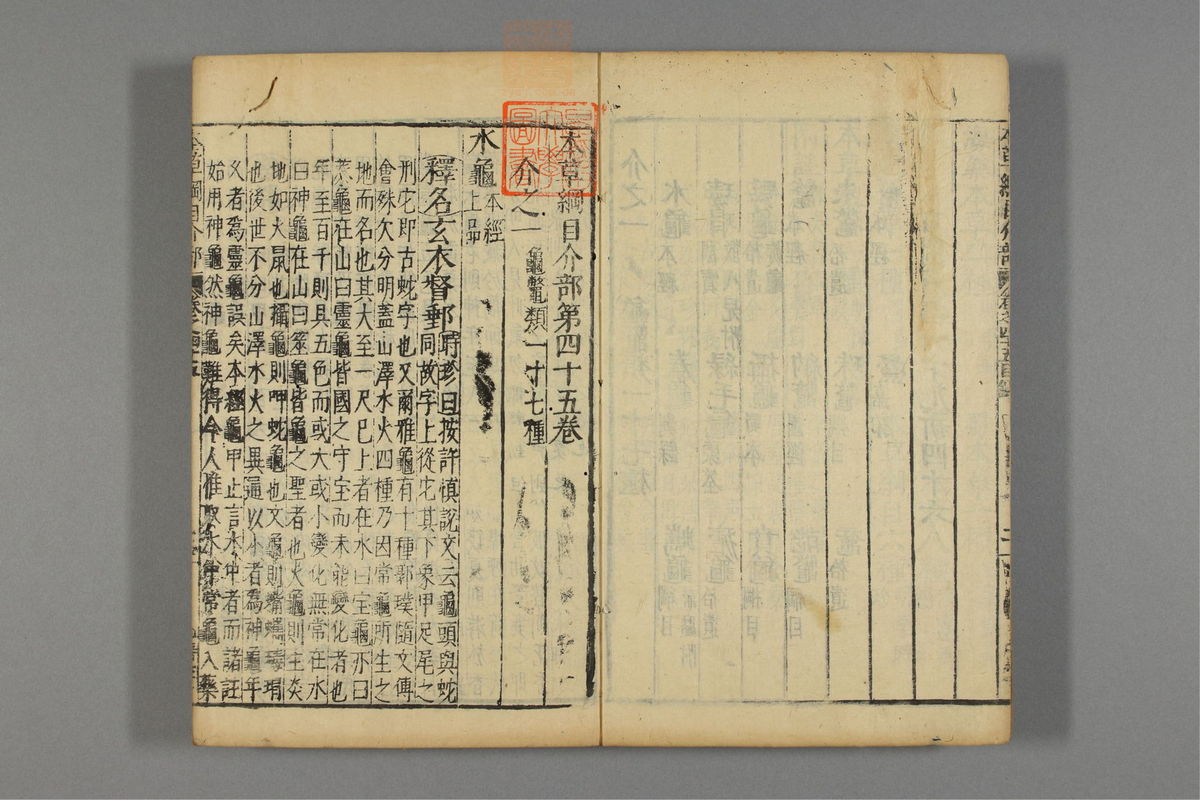 本草綱目介部第四十五卷
介之一 龜鱉類一十七種
水龜 本經上品
釋名玄衣督郵 時珍曰按許慎說文云龜頭與蛇
同故字上從它其下象甲足尾之
形它即古蛇字也又爾雅龜有十種郭璞隨文傅
會殊欠分明蓋山澤水火四種乃因常龜所生之
地而名也其大至一尺已上者在水曰宝龜亦曰
蔡龜在山曰靈龜皆國之守宝而未能變化者也
年至百千則具五色而或大或小變化無常在水
曰神龜在山曰筮龜皆龜之聖者也火龜則生炎
地如火鼠也攝龜則呷蛇龜也文龜則蟕蠵瑇瑁
也後世不分山澤水火之異通以小者為神龜年
久者為靈龜誤矣本經龜甲止言水中者而諸註
始用神龜然神龜難得今人惟取水中常龜入藥